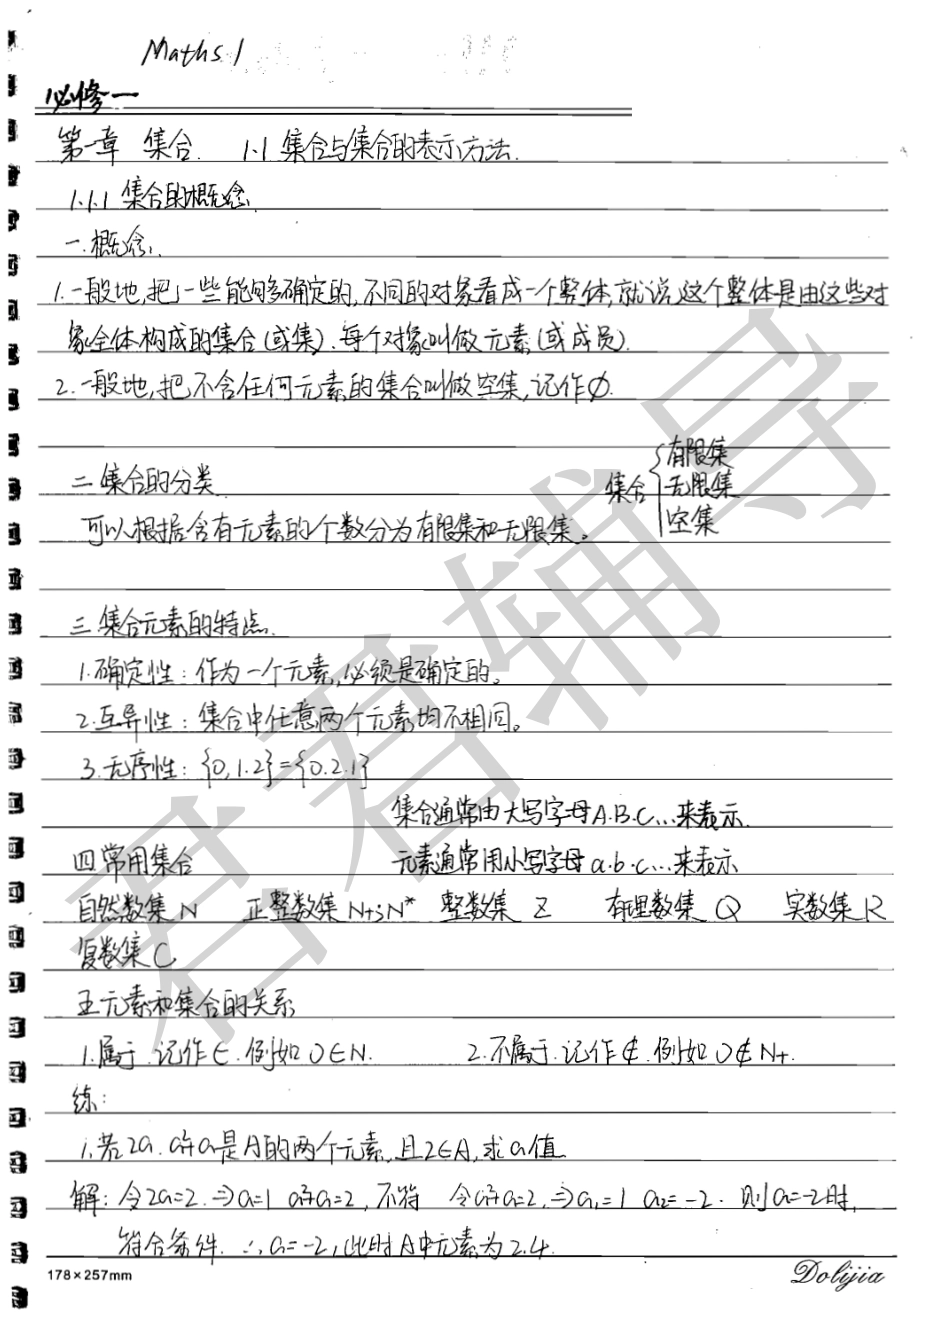 Maths 1
必修一
第一章 集合. 1.1 集合与集合的表示方法.
1.1.1 集合的概念.
一.概念.
1.一般地,把一些能够确定的,不同的对象看成一个整体,就说这个整体是由这些对
象全体构成的集合(或集).每个对象叫做元素(或成员).
2.一般地,把不含任何元素的集合叫做空集,记作∅.
二 集合的分类
集合 { 有限集
无限集
空集
可以根据含有元素的个数分为有限集和无限集。
三.集合元素的特点.
1.确定性: 作为一个元素,必须是确定的。
2.互异性: 集合中任意两个元素均不相同。
3.无序性: {0,1.2}={0.2.1}
集合通常由大写字母A.B.C...来表示.
四 常用集合 元素通常用小写字母a.b.c...来表示
自然数集 N 正整数集 N+;N* 整数集 Z 有理数集 Q 实数集 R
复数集 C
五 元素和集合的关系
1.属于.记作∈.例如0∈N. 2.不属于.记作∉.例如0∉N+.
练:
1.若2a.a²+a是A的两个元素,且2∈A,求a值
解: 令2a=2.⇒a=1 a²+a=2,不符 令a²+a=2.⇒a₁=1 a₂=-2. 则a=-2时,
符合条件. ∴a=-2,此时A中元素为2.4.
178×257mm
Dolijia
君君辅导